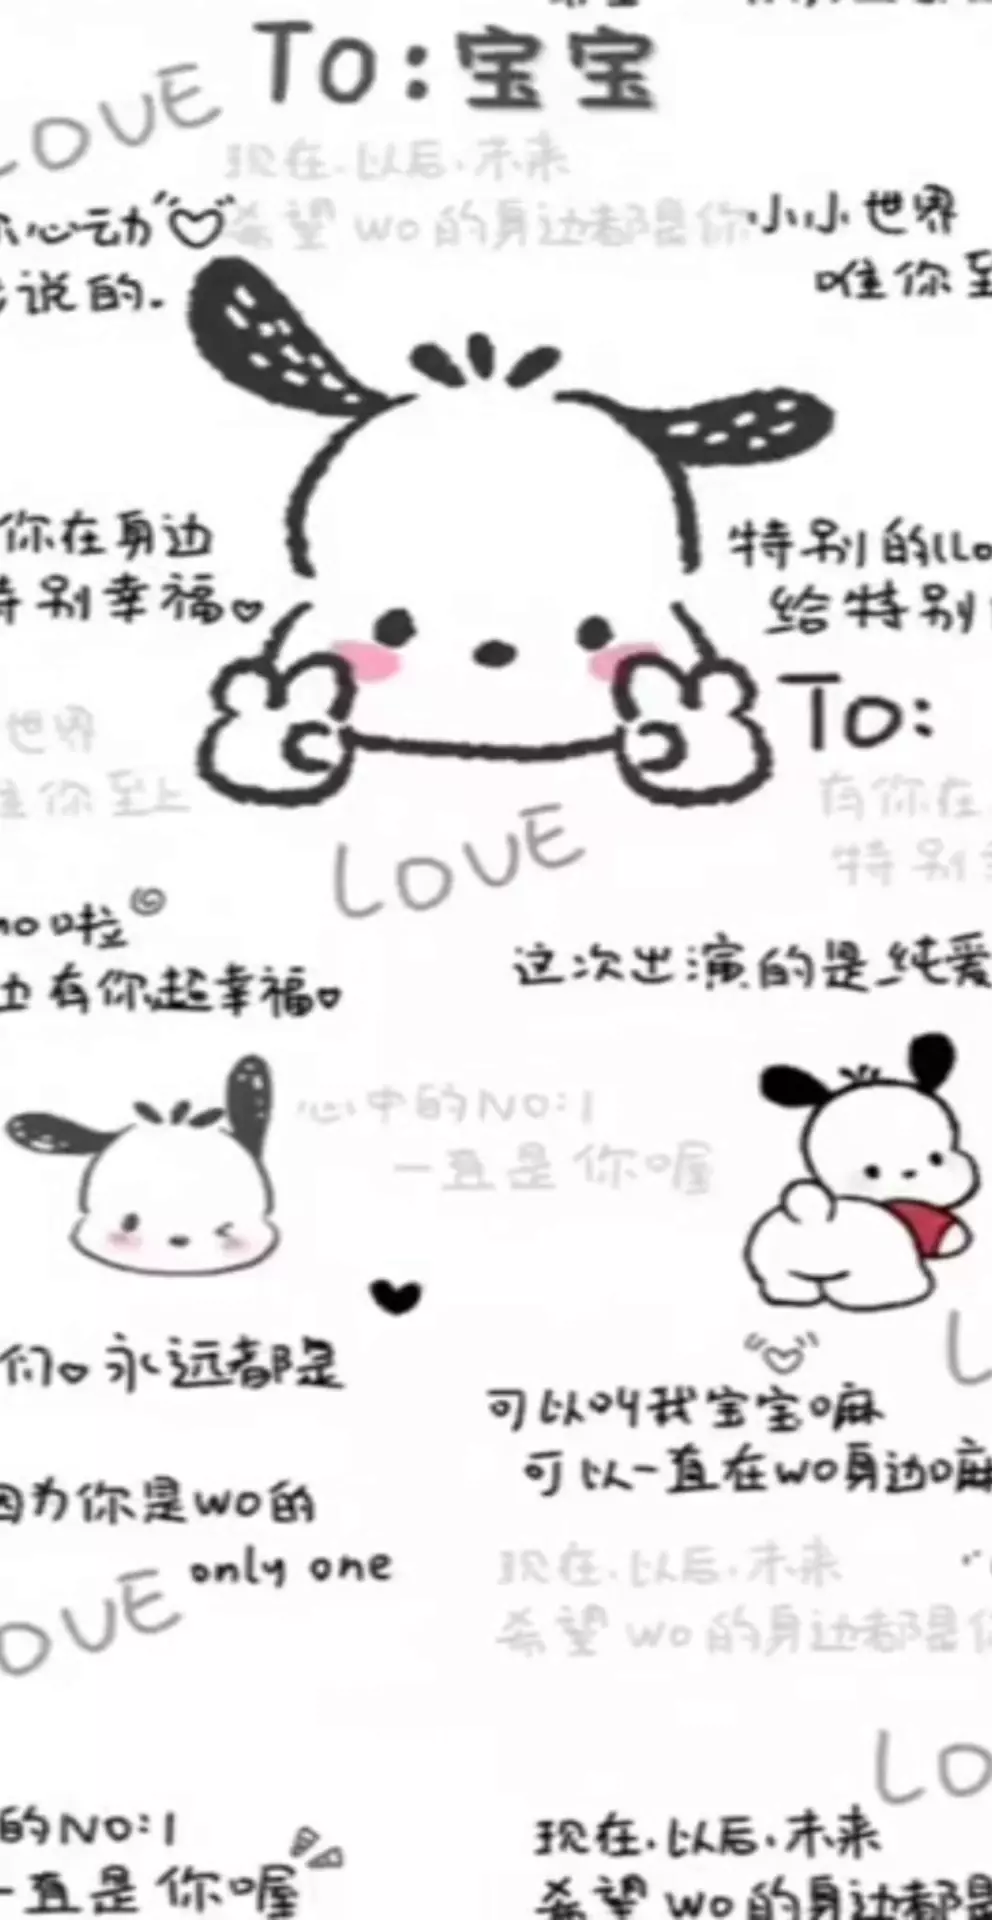 To:宝宝
LOVE
现在.以后.未来
希望wo的身边都是你
心动
说的.
小小世界
唯你至
你在身边
特别幸福
特别的
给特别
To:
世界
你至上
有你在
特别
LOVE
啦
有你超幸福
这次出演的是纯爱
心中的NO:1
一直是你喔
们 永远都是
可以叫我宝宝嘛
可以一直在wo身边嘛
因为你是wo的
only one
现在.以后.未来
希望wo的身边都是你
OVE
LO
的NO:1
一直是你喔
现在.以后.未来
希望wo的身边都是